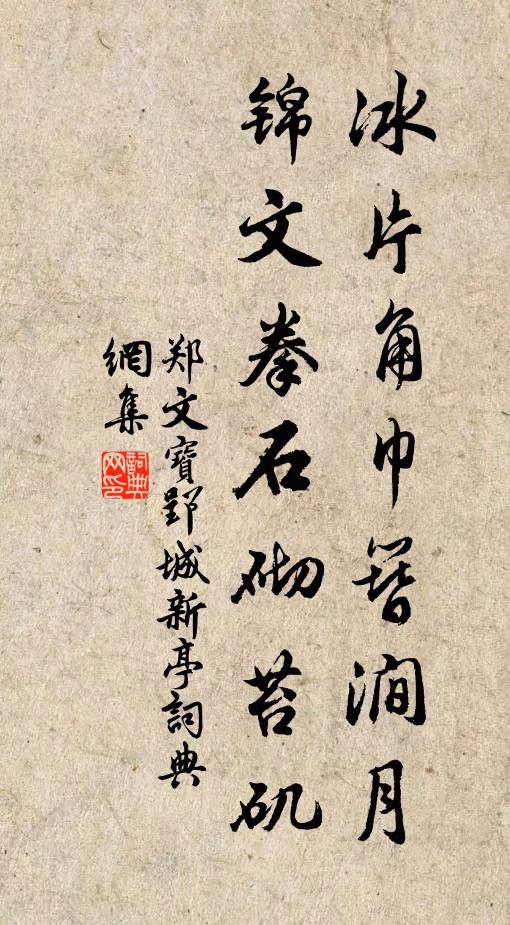 冰片角巾簪涧月
锦文拳石砌苔矶
郑文寶郢城新亭詞典
網集
詞典网印